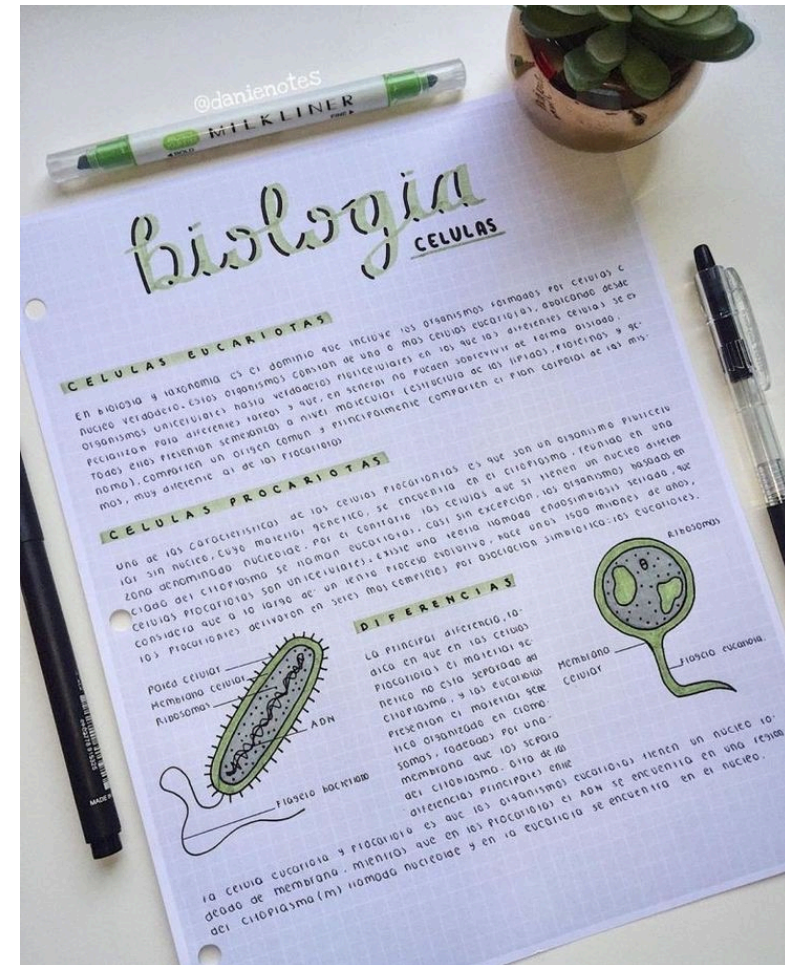 @danienotes
MILKLINER
biologia
CELULAS
CELULAS EUCARIOTAS
En biologia y taxonomia es el dominio que incluye los organismos formados por celulas c
nucleo verdadero. Estos organismos constan de una o mas celulas eucariotas, abarcando desde
organismos unicelulares hasta verdaderos pluricelulares en los que las diferentes celulas se es
pecializan para diferentes tareas y que, en general no pueden sobrevivir de forma aislada.
Todos ellos presentan semejanzas a nivel molecular (estructura de los lipidos, proteinas y ge-
noma), comparten un origen comun y principalmente comparten el plan corporal de las mis-
mos, muy diferente al de las procariotas
CELULAS PROCARIOTAS
una de las caracteristicas de las celulas procariontas es que son un organismo pluricelu
lar sin nucleo, cuyo material genetico, se encuentra en el citoplasma, reunido en una
zona denominada nucleoide. Por el contrario las celulas que si tienen un nucleo diferen
ciado del citoplasma se llaman eucariotas. Casi sin excepción, los organismos basados en
celulas procariotas son unicelulares. Existe una teoria llamada endosimbiosis seriada, que
considera que a lo largo de un lento proceso evolutivo, hace unos 1500 millones de años,
los procariontes derivaron en seres mas complejos por asociacion simbiotica: los eucariotes.
DIFERENCIAS
La principal diferencia, ra-
dica en que en las celulas
procariotas el material ge-
netico no esta separado del
citoplasma, y las eucariotas
presentan el material gene
tico organizado en cromo
somas, rodeados por una
membrana que los separa
del citoplasma. Otra de las
diferencias principales entre
la celula eucariota y procariota es que los organismos eucariotas tienen un nucleo ro-
deado de membrana, mientras que en las procariotas el ADN se encuentra en una region
del citoplasma (m) llamada nucleoide y en la eucariota se encuentra en el nucleo.
Pared celular
Membrana celular
Ribosomas
ADN
Flagelo bacteriano
Ribosomas
Membrana
celular
Flagelo eucariota.